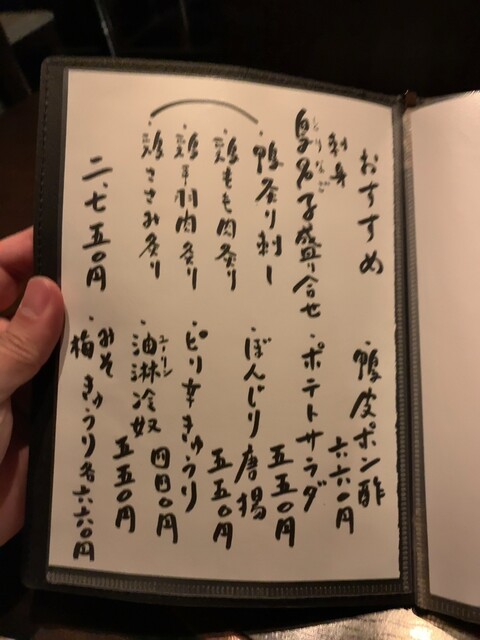 おすすめ
刺身
とりなご
鳥名子盛り合せ
・鴨炙り刺し
・鶏もも肉炙り
・鶏手羽肉炙り
・鶏ささみ炙り
二、七五〇円
・鴨皮ポン酢
六六〇円
・ポテトサラダ
五五〇円
・ぼんじり唐揚
五五〇円
・ピリ辛きゅうり
四四〇円
ユーリン
・油淋冷奴
五五〇円
みそ
・梅きゅうり各六六〇円